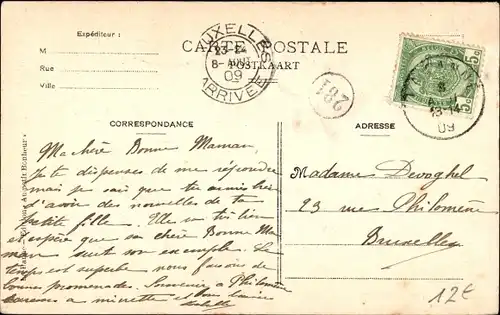 Expéditeur :
M
Rue
Ville
CARTE POSTALE
POSTKAART
BRUXELLES
8- AOUT
09
ARRIVEE
182
5c 5c
8
13-14
09
CORRESPONDANCE
ADRESSE
Ma chère Bonne Maman,
Je te dispenses de me répondre
mais je sais que tu aimes bien
d'avoir des nouvelles de ta
petite fille. Elle va très bien
et espère que sa chère Bonne Ma
man suit son exemple. Le
temps est superbe nous faisons de
bonnes promenades. Souvenir à Philomène
caresses à minette et bons baisers
Madame Devoghel
23 rue Philomène
Bruxelles
12€